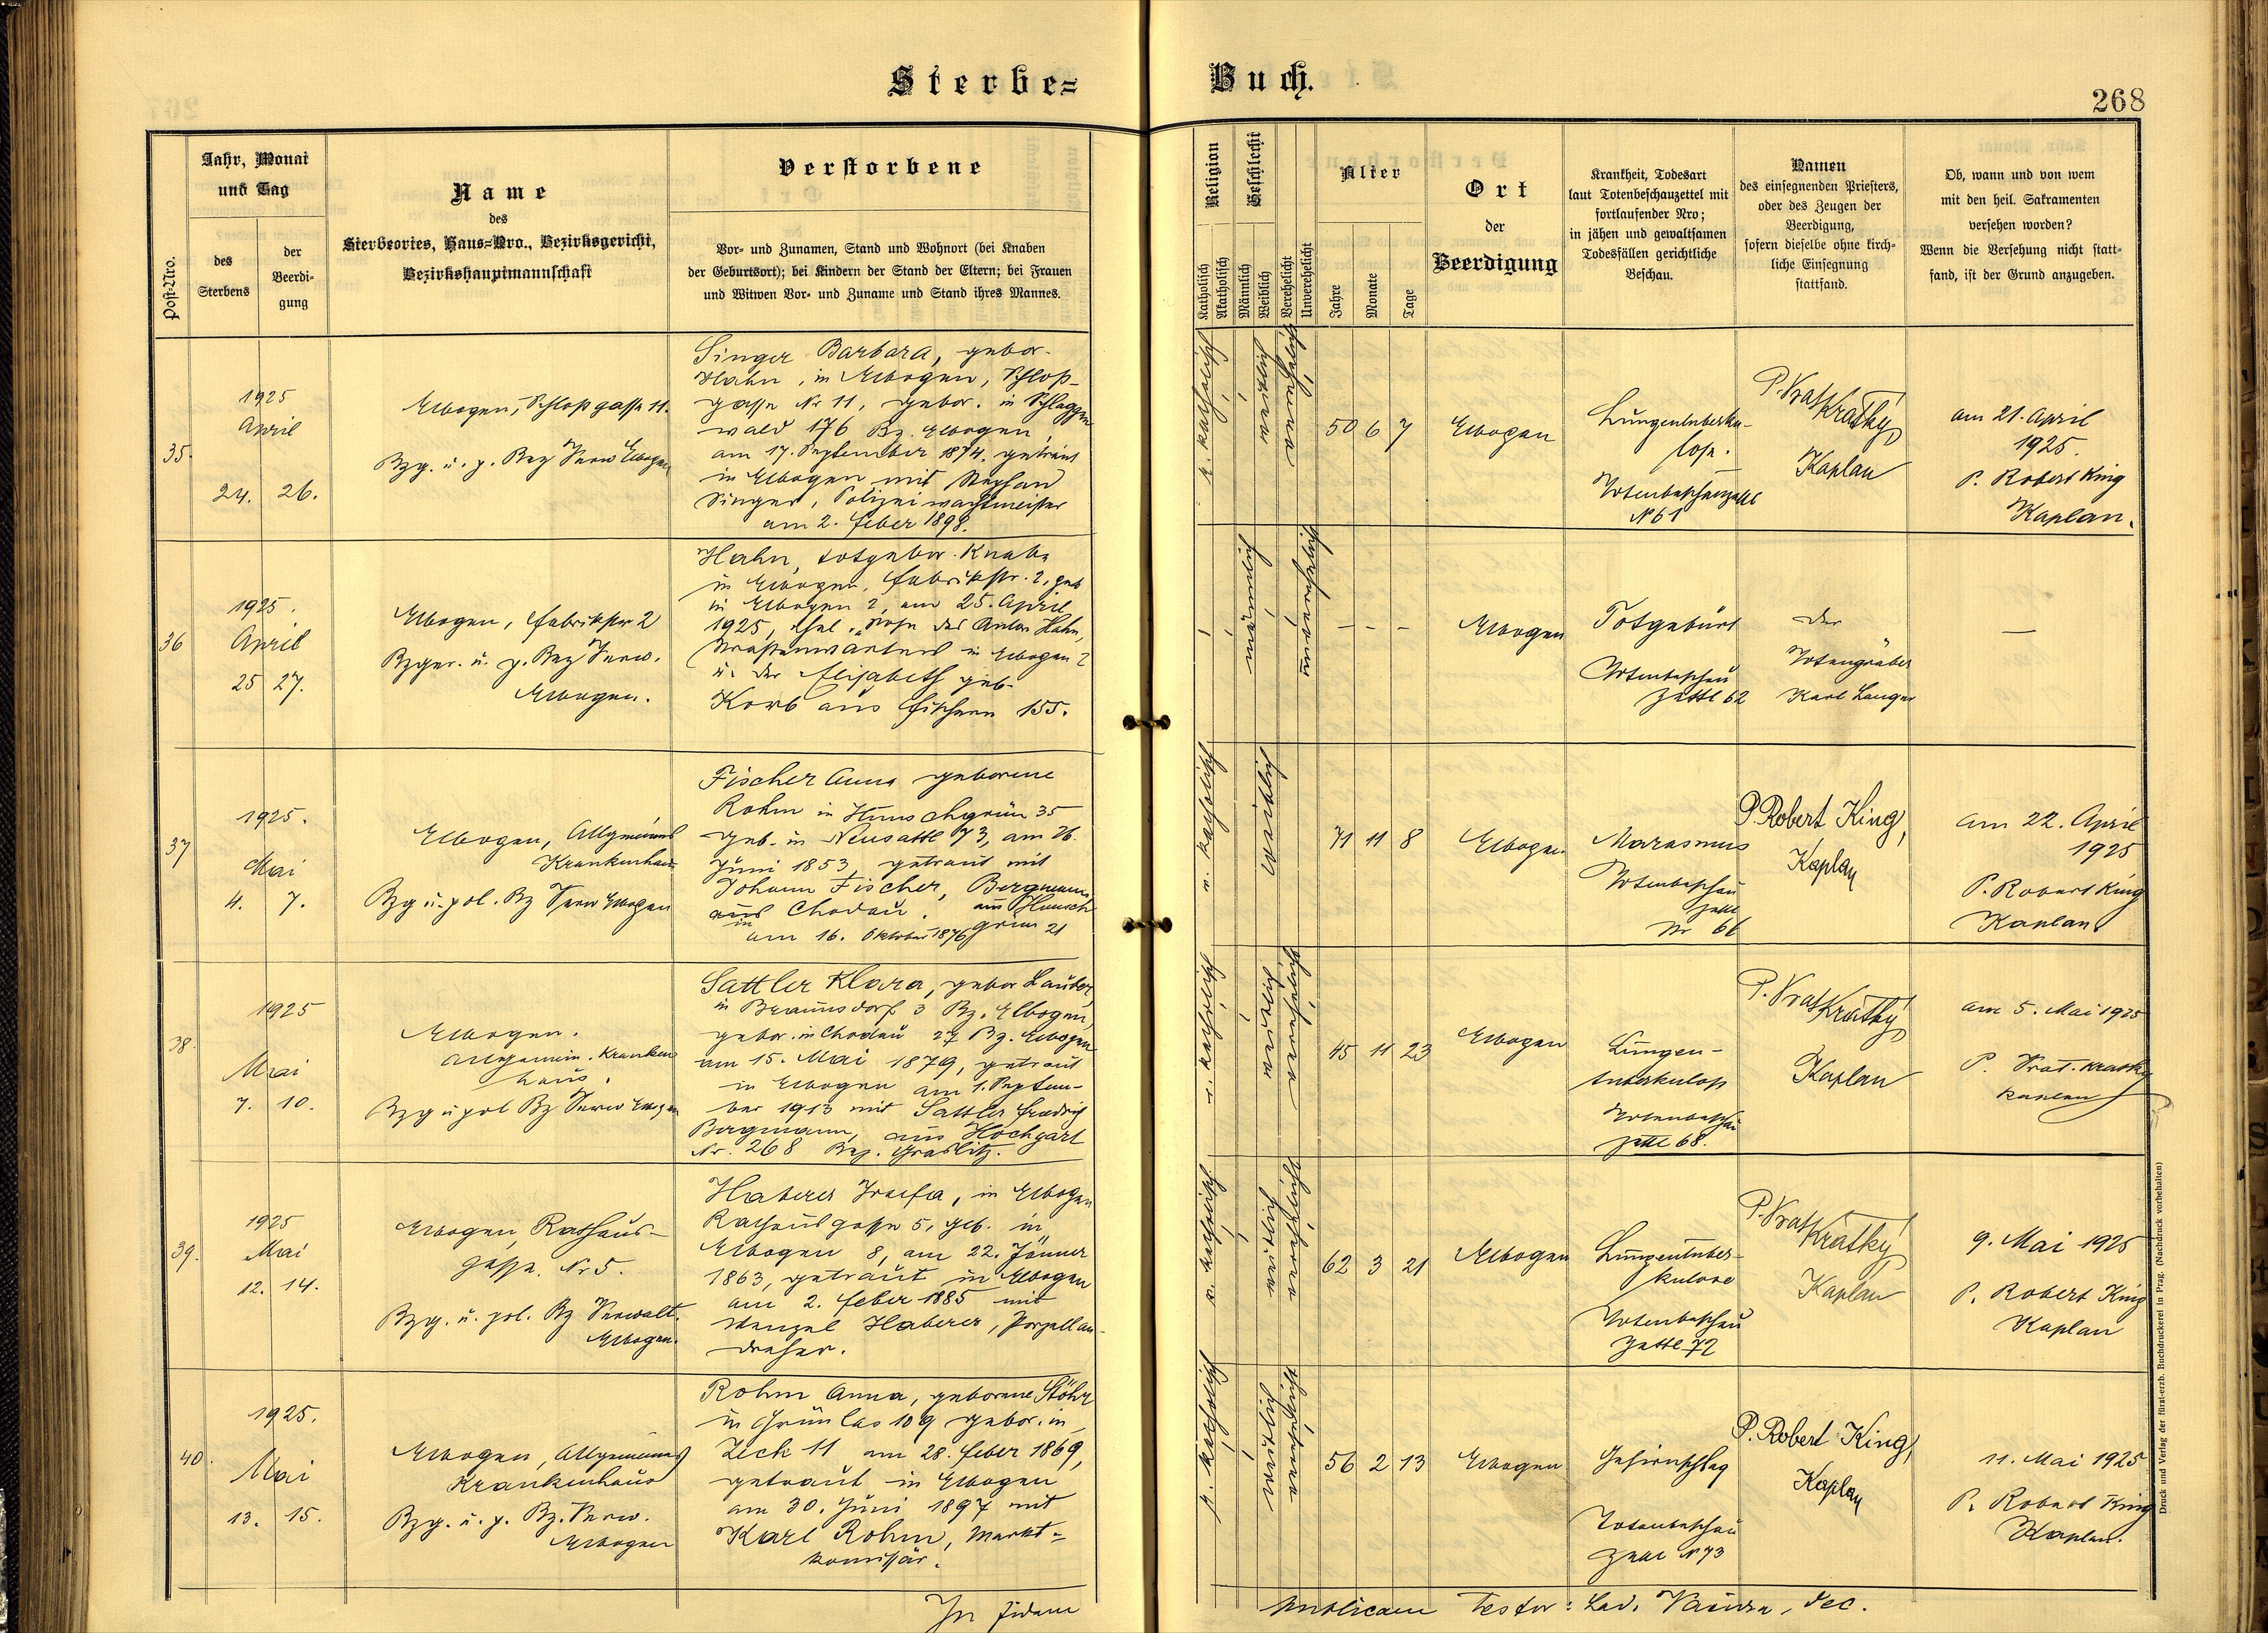 Sterbe=
Buch.
268
Post-Nro.
Jahr, Monat
und Tag
des
Sterbens
der
Beerdi-
gung
Name
des
Sterbeortes, Haus=Nro., Bezirksgericht,
Bezirkshauptmannschaft
Verstorbene
Vor- und Zunamen, Stand und Wohnort (bei Knaben
der Geburtsort); bei Kindern der Stand der Eltern; bei Frauen
und Witwen Vor- und Zuname und Stand ihres Mannes.
Religion
Katholisch
Akatholisch
Geschlecht
Männlich
Weiblich
Verehelicht
Unverehelicht
Alter
Jahre
Monate
Tage
Ort
der
Beerdigung
Krankheit, Todesart
laut Totenbeschauzettel mit
fortlaufender Nro;
in jähen und gewaltsamen
Todesfällen gerichtliche
Beschau.
Namen
des einsegnenden Priesters,
oder des Zeugen der
Beerdigung,
sofern dieselbe ohne kirch-
liche Einsegnung
stattfand.
Ob, wann und von wem
mit den heil. Sakramenten
versehen worden?
Wenn die Versehung nicht statt-
fand, ist der Grund anzugeben.
35.
1925
April
24. 26.
Elbogen, Schloßgasse 11.
Bzg. u. p. Bez Verw Elbogen
Singer Barbara, gebor.
Hahn, in Elbogen, Schloß-
gasse Nr 11, gebor. in Schlaggen
wald 176 Bz. Elbogen,
am 17. September 1874. getraut
in Elbogen mit Stephan
Singer, Polizeiwachtmeister
am 2. Feber 1898.
r. katholisch
weiblich
verehelicht
50 6 7
Elbogen
Lungentuberku-
lose.
Totenbeschauzettel
No 61
P. Vrat Krátký
Kaplan
am 21. April
1925.
P. Robert King
Kaplan.
36
1925.
April
25 27.
Elbogen, Fabrikstr 2
Bzger. u. p. Bez Verw.
Elbogen.
Hahn, totgebor. Knabe
in Elbogen, Fabrikstr. 2, geb
in Elbogen 2, am 25. April
1925, ehel. Sohn des Anton Hahn,
Straßenwärters in Elbogen 2
u. der Elisabeth geb.
Korb aus Fischern 155.
männlich
unverehelicht
– – –
Elbogen
Totgeburt
Totenbeschau
zettl 62
Der
Totengräber
Karl Langer
—
37
1925.
Mai
4. 7.
Elbogen, Allgemeines
Krankenhaus
Bzg u. pol. Bz Verw Elbogen
Fischer Anna geborene
Rohm in Hunschgrün 35
geb. in Neusattl 73, am 26.
Juni 1853, getraut mit
Johann Fischer, Bergmann
aus Hunsch
grün 21
in Chodau.
am 16. Oktober 1876
r. katholisch
weiblich
71 11 8
Elbogen
Marasmus
Totenbeschau
zettl
Nr 66
P. Robert King,
Kaplan
am 22. April
1925
P. Robert King
Kaplan
38.
1925
Mai
7. 10.
Elbogen.
Allgemein. Kranken
haus.
Bzg u pol Bz Verw Elbogen
Sattler Klara, gebor Lauber
in Braunsdorf 3 Bz. Elbogen,
gebor. in Chodau 27 Bz. Elbogen
am 15. Mai 1879, getraut
in Elbogen am 1. Septem-
ber 1913 mit Sattler Friedrich
Bergmann, aus Hochgart
Nr. 268 Bez. Graslitz.
r. katholisch
weiblich
verehelicht
45 11 23
Elbogen
Lungen-
tuberkulose
Totenbeschau
zettl 68.
P. Vrat Krátký
Kaplan
am 5. Mai 1925
P. Vrat. Kratky
Kaplan
39.
1925
Mai
12. 14.
Elbogen, Rathaus-
gasse. Nr 5.
Bzg. u. pol. Bz Verwalt.
Elbogen.
Haberer Josefa, in Elbogen
Rathausgasse 5, geb. in
Elbogen 8, am 22. Jänner
1863, getraut in Elbogen
am 2. Feber 1885 mit
Wenzel Haberer, Porzellan-
dreher.
r. katholisch
weiblich
verehelicht
62 3 21
Elbogen
Lungentuber-
kulose
Totenbeschau
zettl 72
P. Vrat Krátký
Kaplan
9. Mai 1925
P. Robert King
Kaplan
40.
1925.
Mai
13. 15.
Elbogen, Allgemeines
Krankenhaus
Bzg. u. p. Bz. Verw.
Elbogen
Rohm Anna, geborene Stöhr
in Grünlas 109 gebor. in
Zech 11 am 28. Feber 1869,
getraut in Elbogen
am 30. Juni 1897 mit
Karl Rohm, Markt=
komissär.
r. katholisch
weiblich
verehelicht
56 2 13
Elbogen
Gehirnschlag
Totenbeschau
zettl No 73
P. Robert King,
Kaplan
11. Mai 1925
P. Robert King
Kaplan.
In fidem
publicam Testor: Lad. , dec.
Druck und Verlag der fürst-erzb. Buchdruckerei in Prag. (Nachdruck vorbehalten)